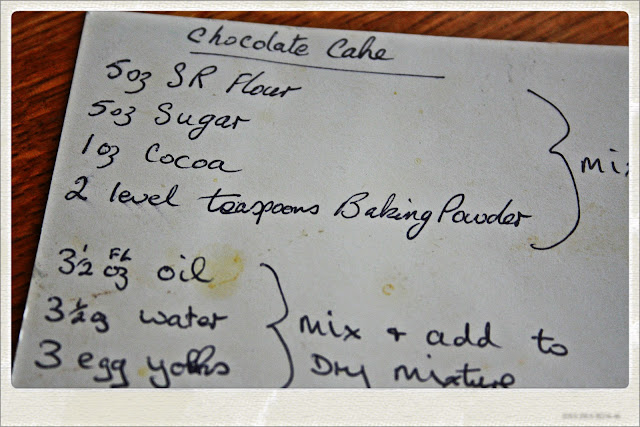 Chocolate Cake
5oz SR Flour
5oz Sugar
1oz Cocoa
2 level teaspoons Baking Powder
mi
3½ FL oz oil
3½ water
3 egg yolks
mix + add to
Dry mixture